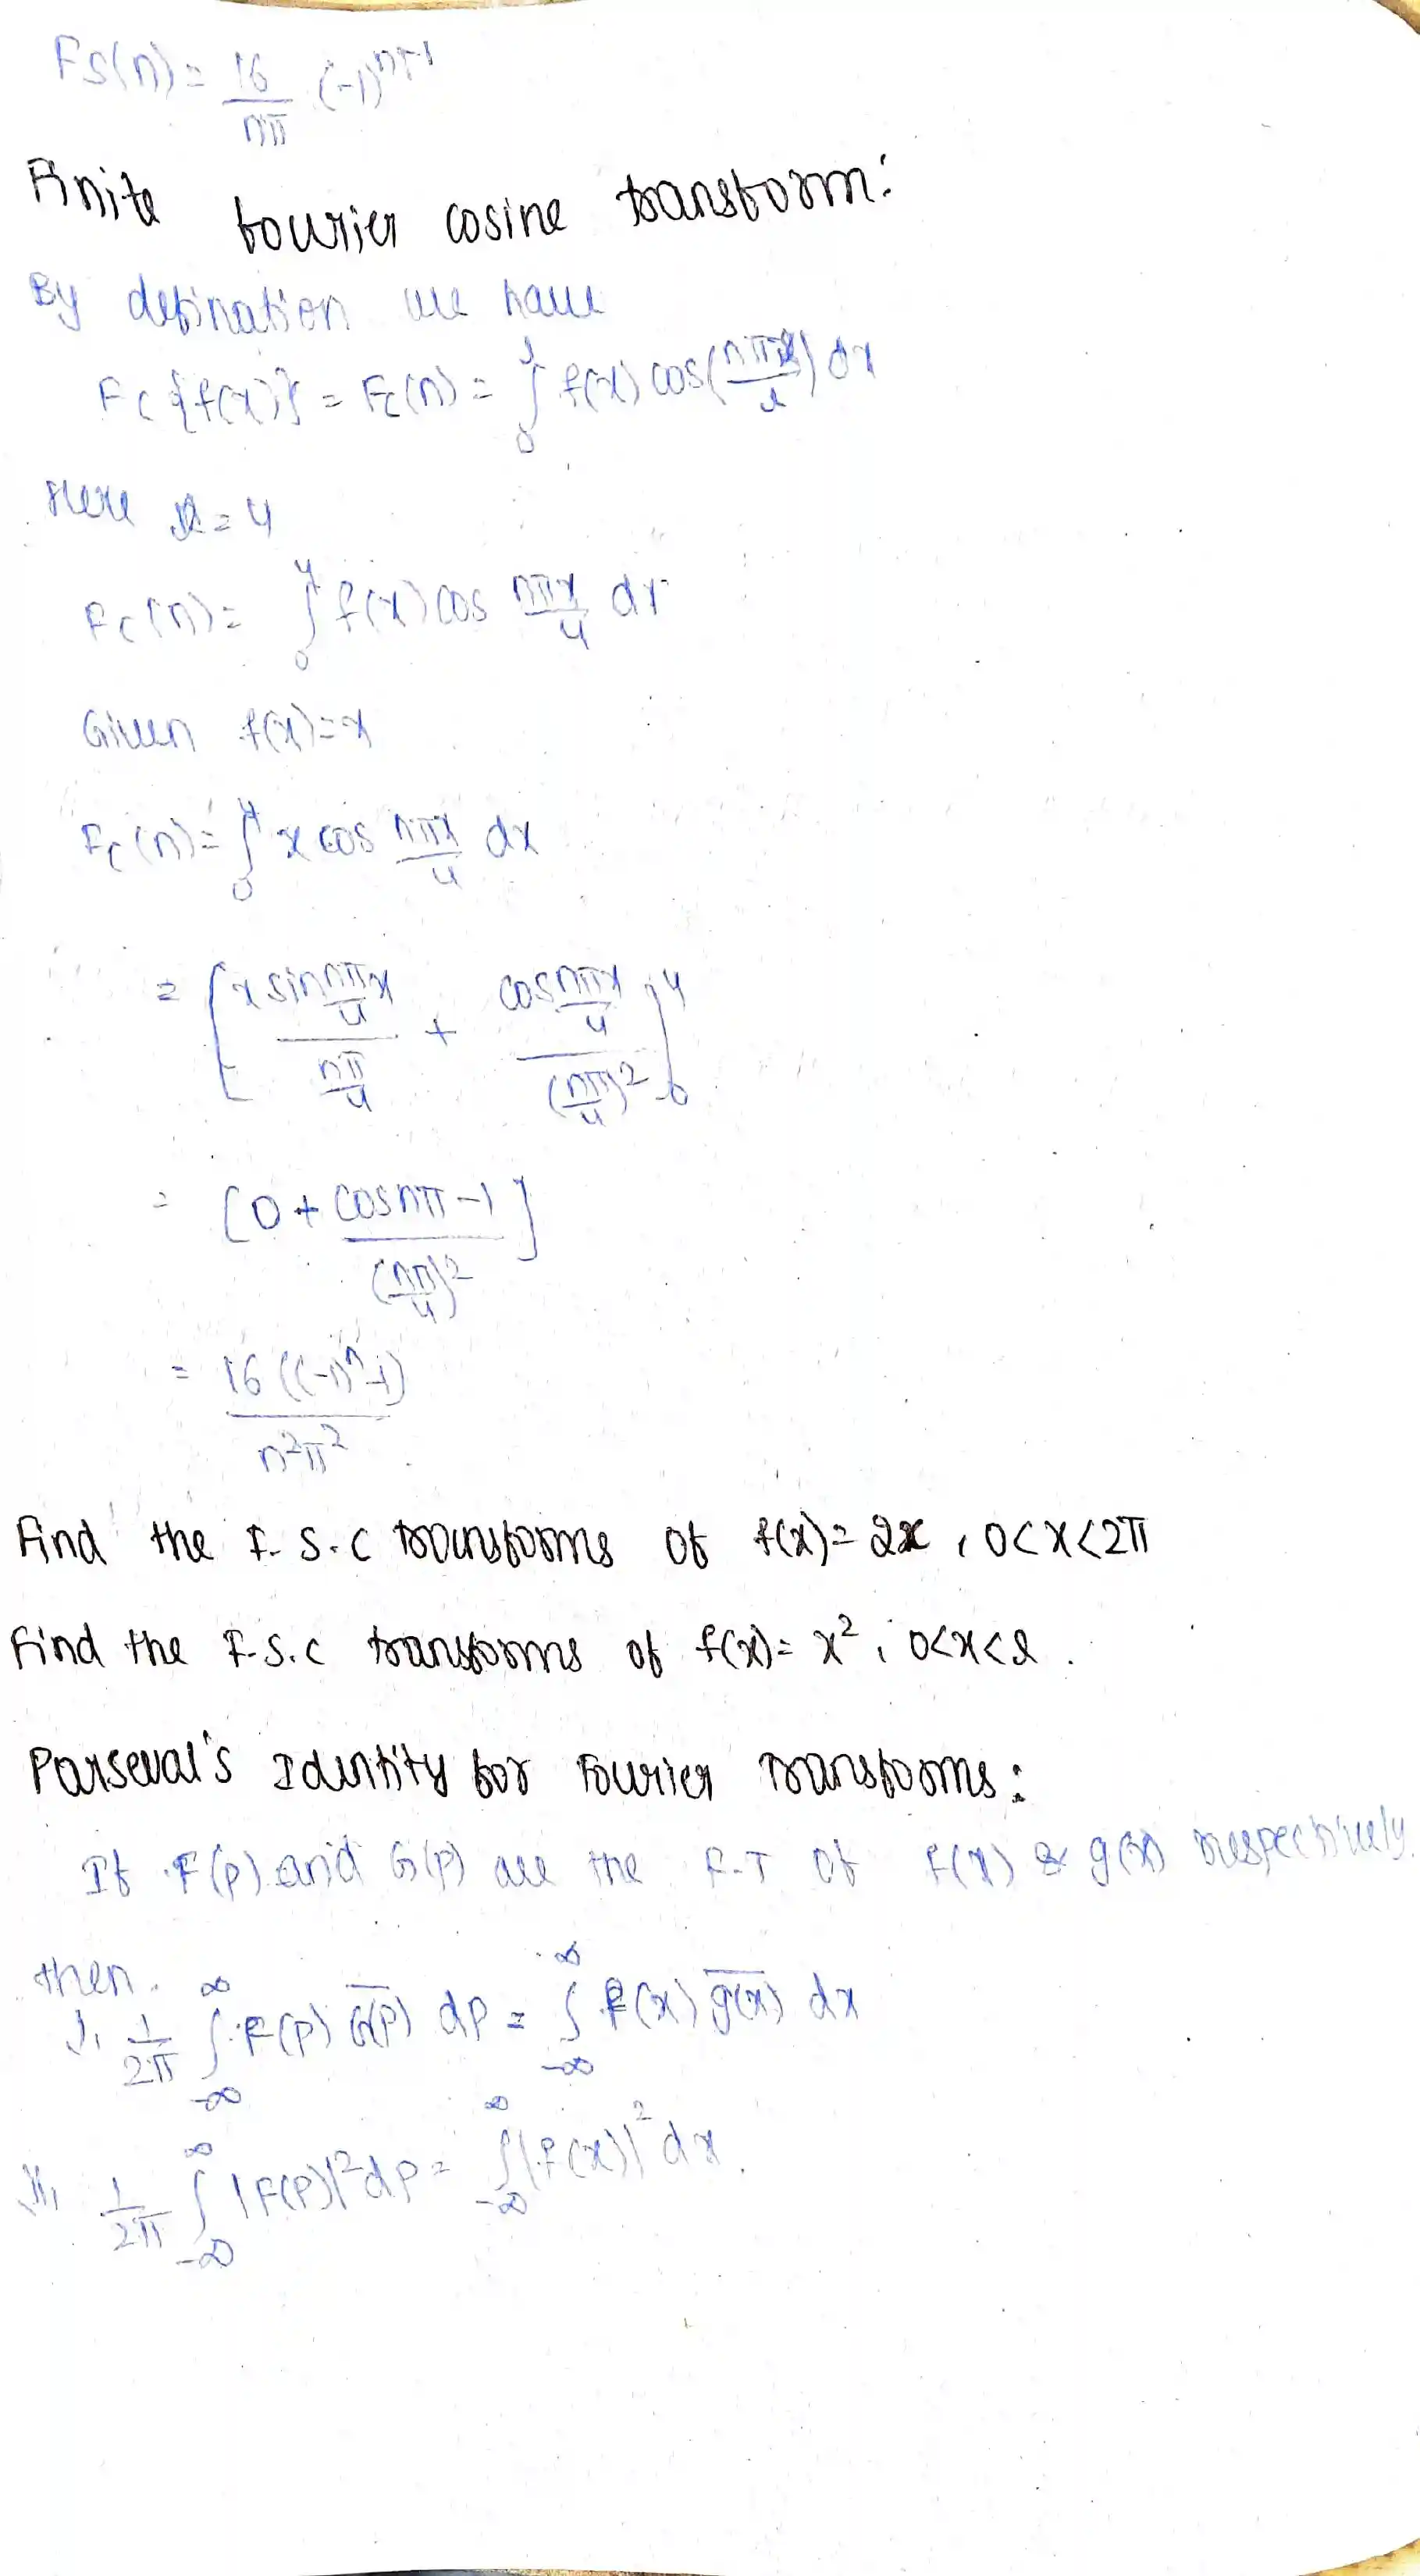 Fs(n) = 16/nπ (-1)^n+1
Finite fourier cosine transform:
By defination we have
Fc{f(x)} = Fc(n) = ∫_0^l f(x) cos(nπx/l) dx
Here l = 4
Fc(n) = ∫_0^4 f(x) cos nπx/4 dx
Given f(x) = x
Fc(n) = ∫_0^4 x cos nπx/4 dx
= [x sin nπx/4 / nπ/4 + cos nπx/4 / (nπ/4)^2]_0^4
= [0 + cosnπ - 1 / (nπ/4)^2]
= 16((-1)^n - 1) / n^2π^2
Find the F.S.C transforms of f(x) = 2x, 0<x<2π
Find the F.S.C transforms of f(x) = x^2, 0<x<2.
Parseval's Identity for Fourier Transforms:
If F(p) and G(p) are the F.T of f(x) & g(x) respectively.
then.
i, 1/2π ∫_-∞^∞ F(p) \overline{G(p)} dp = ∫_-∞^∞ f(x) \overline{g(x)} dx
ii, 1/2π ∫_-∞^∞ |F(p)|^2 dp = ∫_-∞^∞ |f(x)|^2 dx.